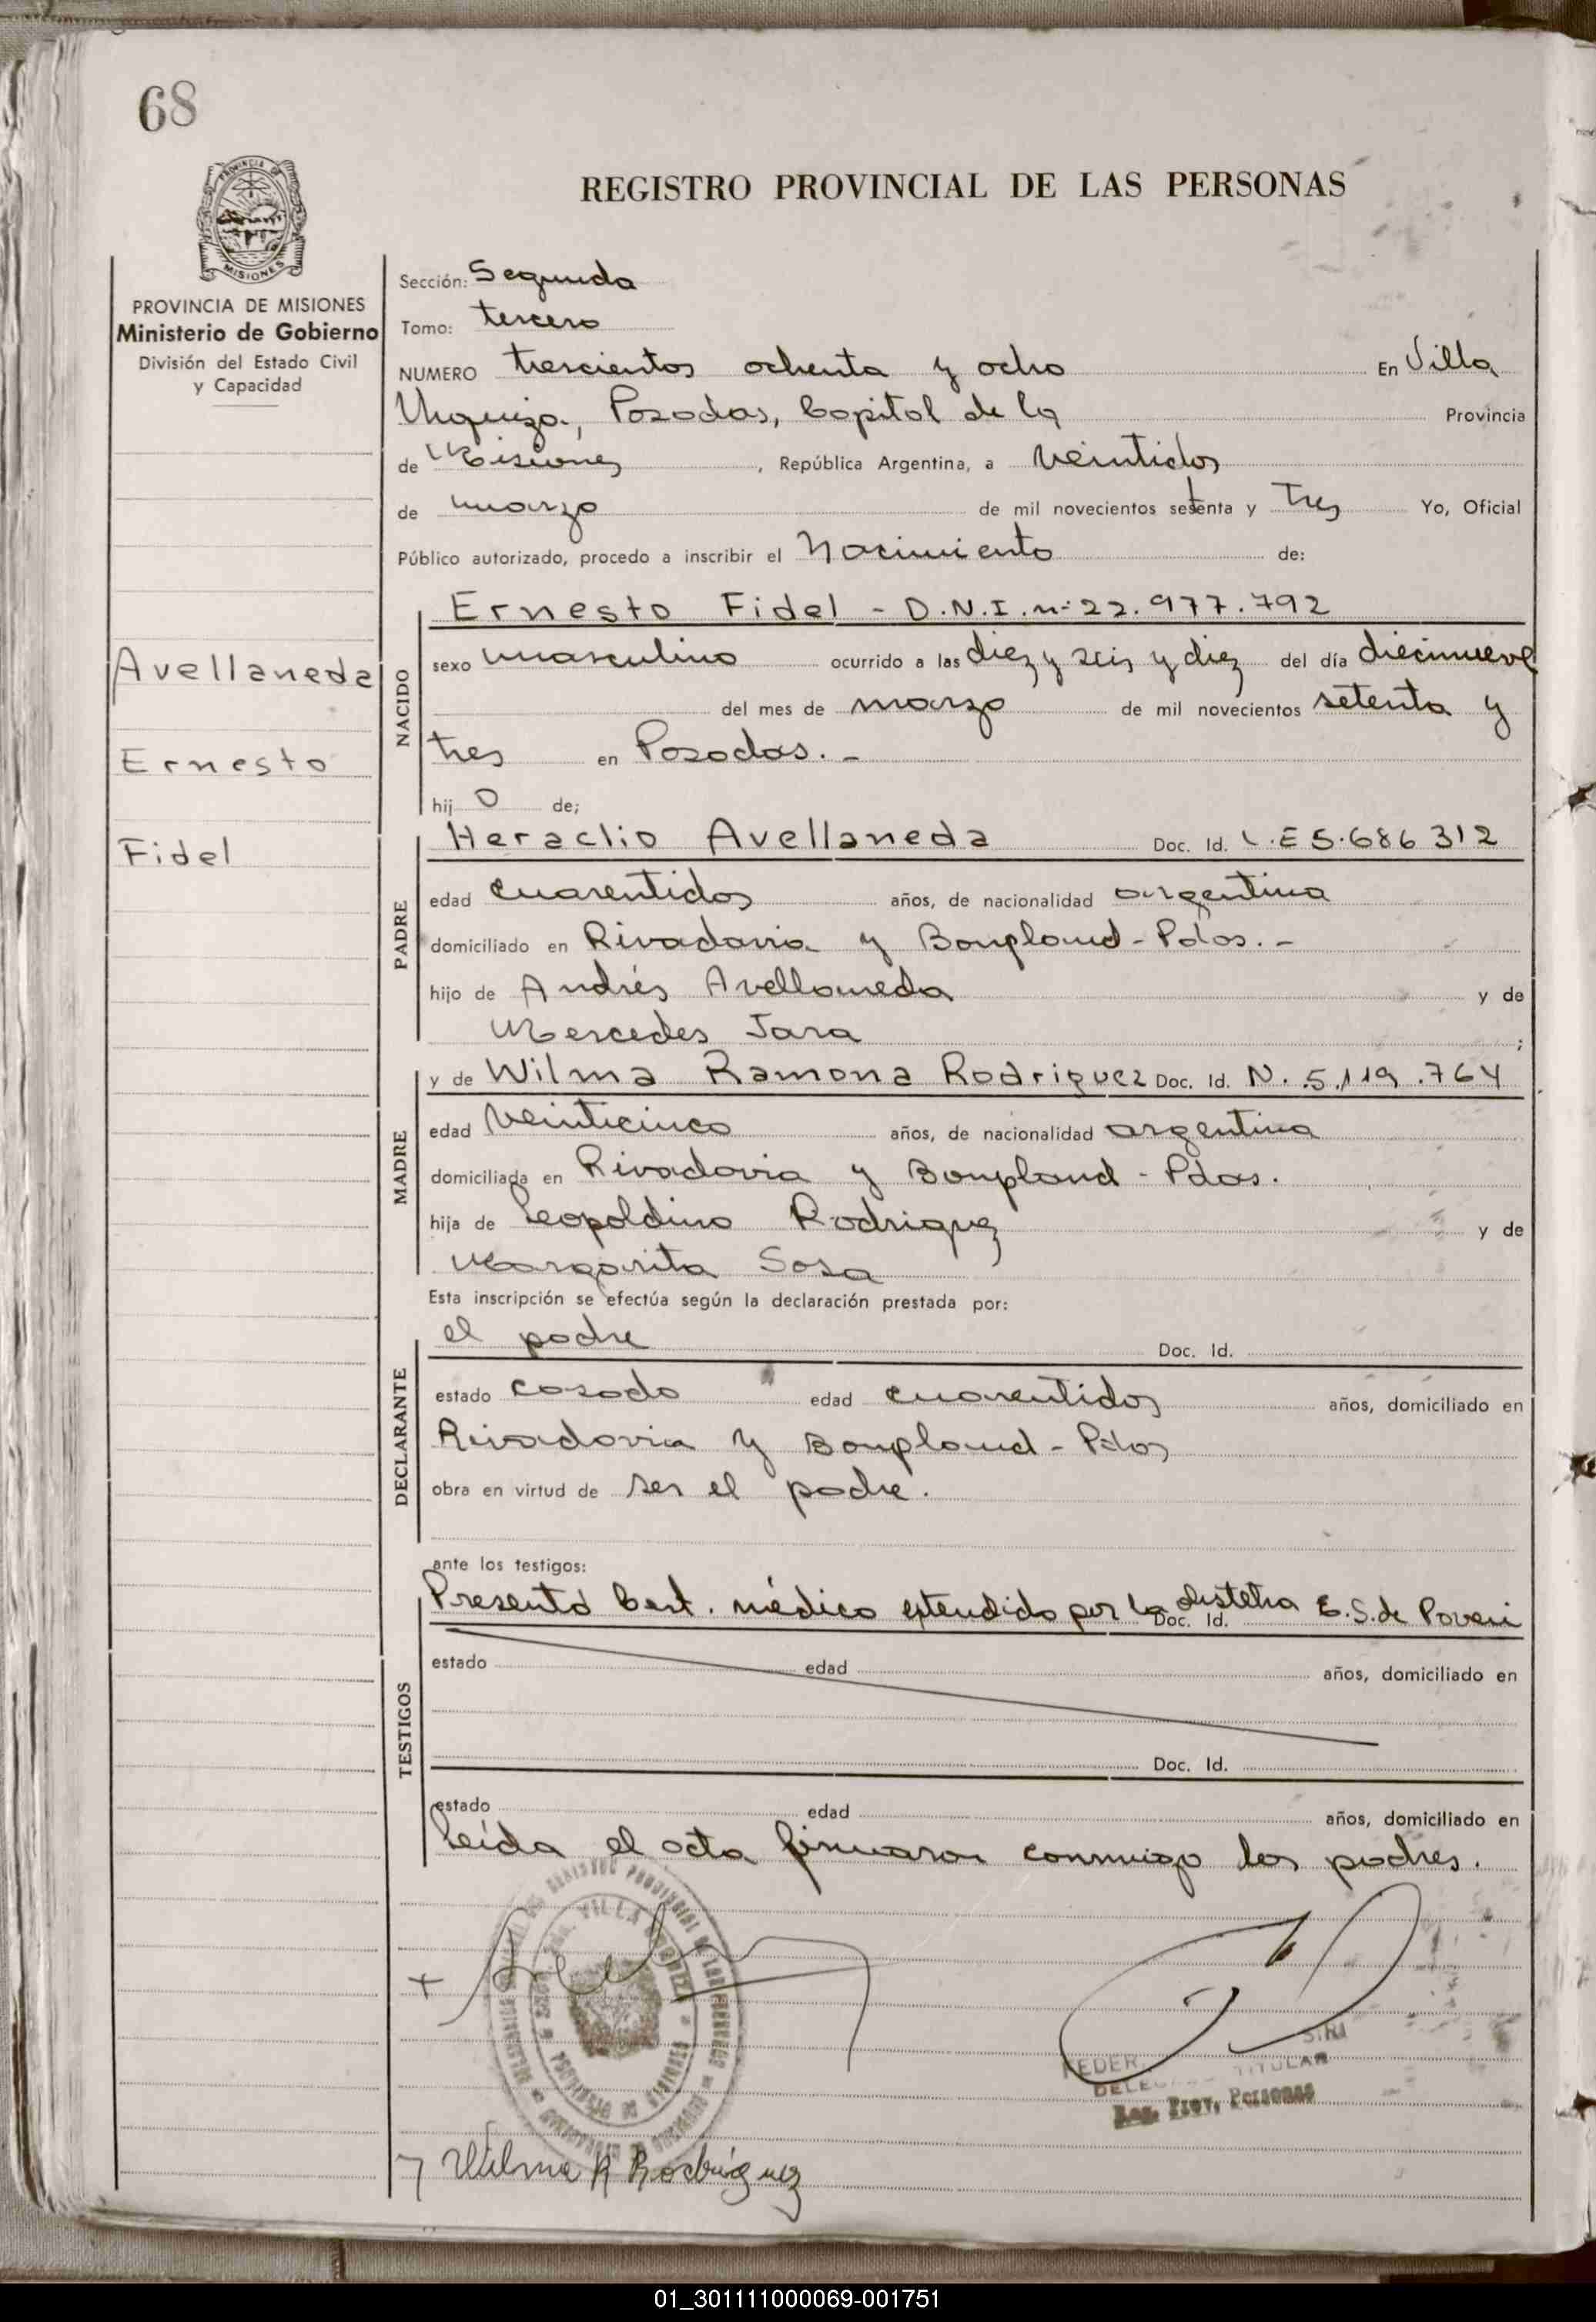 68
REGISTRO PROVINCIAL DE LAS PERSONAS
PROVINCIA DE MISIONES
Ministerio de Gobierno
División del Estado Civil
y Capacidad
Avellaneda
Ernesto
Fidel
Sección: Segunda
Tomo: tercero
NUMERO trescientos ochenta y ocho En Villa
Urquiza, Posadas, Capital de la Provincia
de Misiones, República Argentina, a veintidos
de marzo de mil novecientos setenta y tres Yo, Oficial
Público autorizado, procedo a inscribir el Nacimiento de:
NACIDO
Ernesto Fidel - D.N.I. nº 22.977.792
sexo masculino ocurrido a las diez y seis y diez del día diecinueve
del mes de marzo de mil novecientos setenta y
tres en Posadas.-
hij o de;
PADRE
Heraclio Avellaneda Doc. Id. L.E 5.686 312
edad cuarentidos años, de nacionalidad argentina
domiciliado en Rivadavia y Bonpland - Pdas.-
hijo de Andrés Avellaneda y de
Mercedes Jara ;
MADRE
y de Wilma Ramona Rodriguez Doc. Id. N. 5.119.764
edad veinticinco años, de nacionalidad argentina
domiciliada en Rivadavia y Bonpland - Pdas.
hija de Leopoldino Rodriguez y de
Margarita Sosa
Esta inscripción se efectúa según la declaración prestada por:
DECLARANTE
el padre Doc. Id.
estado casado edad cuarentidos años, domiciliado en
Rivadavia y Bonpland - Pdas
obra en virtud de ser el padre.
ante los testigos:
TESTIGOS
Presentó Cert. médico extendido por la obstetra E.S. de Doc. Id.
estado edad años, domiciliado en
Doc. Id.
estado edad años, domiciliado en
Leída el acta firmaron conmigo los padres.
VILLA URQUIZA
TITULAR
Reg. Prov. Personas
Wilma R Rodriguez
01_301111000069-001751